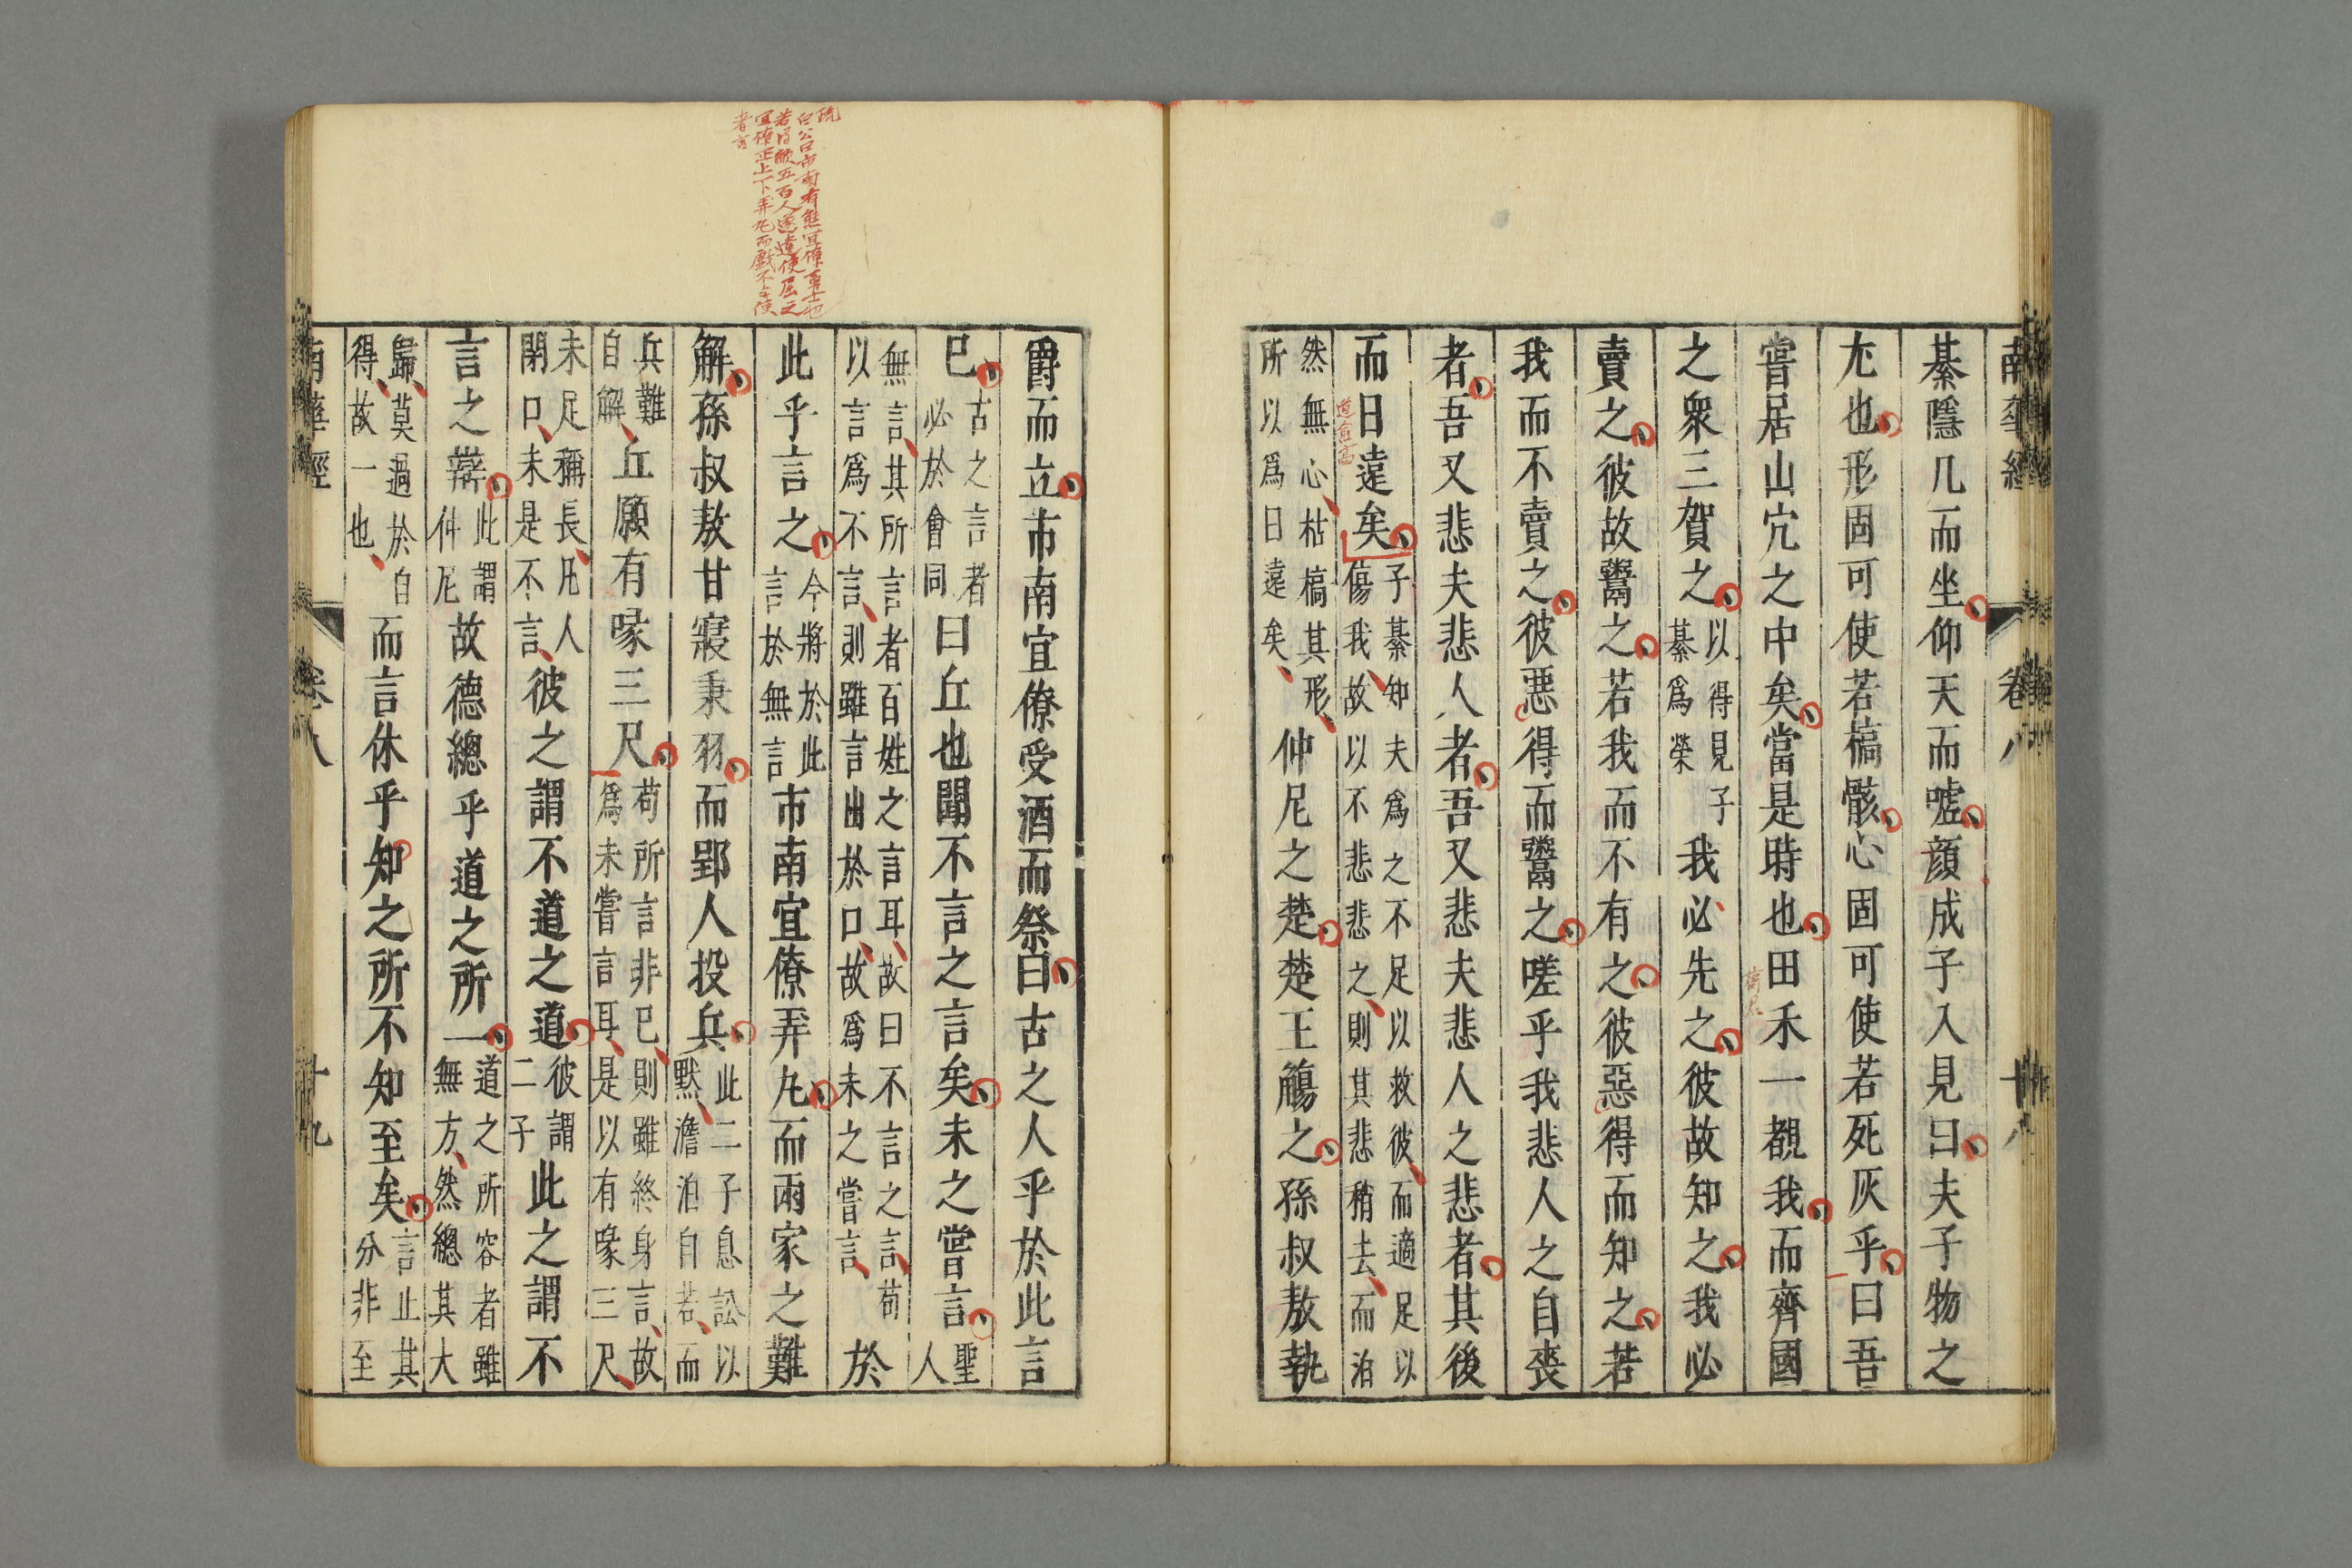 南華經 卷八 十八
綦隱几而坐仰天而噓顔成子入見曰夫子物之
尤也形固可使若槁骸心固可使若死灰乎曰吾
嘗居山穴之中矣當是時也田禾一覩我而齊國
之衆三賀之以得見子綦爲榮我必先之彼故知之我必
賣之彼故鬻之若我而不有之彼惡得而知之若
我而不賣之彼惡得而鬻之嗟乎我悲人之自喪
者吾又悲夫悲人者吾又悲夫悲人之悲者其後
而日遠矣子綦知夫爲之不足以救彼而適足以傷我故以不悲悲之則其悲稍去而泊
道愈高
然無心枯槁其形所以爲日遠矣仲尼之楚楚王觴之孫叔敖執
疏
白公曰市南有熊宜僚勇士也
若得敵五百人遂遣使屈之
宜僚正上下弄丸而戲不與使
者言
爵而立市南宜僚受酒而祭曰古之人乎於此言
已古之言者必於會同曰丘也聞不言之言矣未之嘗言聖人
無言其所言者百姓之言耳故曰不言之言苟以言爲不言則雖言出於口故爲未之嘗言於
此乎言之今將於此言於無言市南宜僚弄丸而兩家之難
解孫叔敖甘寢秉羽而郢人投兵此二子息訟以默澹泊自若而
兵難自解丘願有喙三尺苟所言非已則雖終身言故爲未嘗言耳是以有喙三尺
未足稱長凡人閉口未是不言彼之謂不道之道彼謂二子此之謂不
言之辯此謂仲尼故德總乎道之所一道之所容者雖無方然總其大
歸莫過於自得故一也而言休乎知之所不知至矣言止其分非至
南華經 卷八 十九